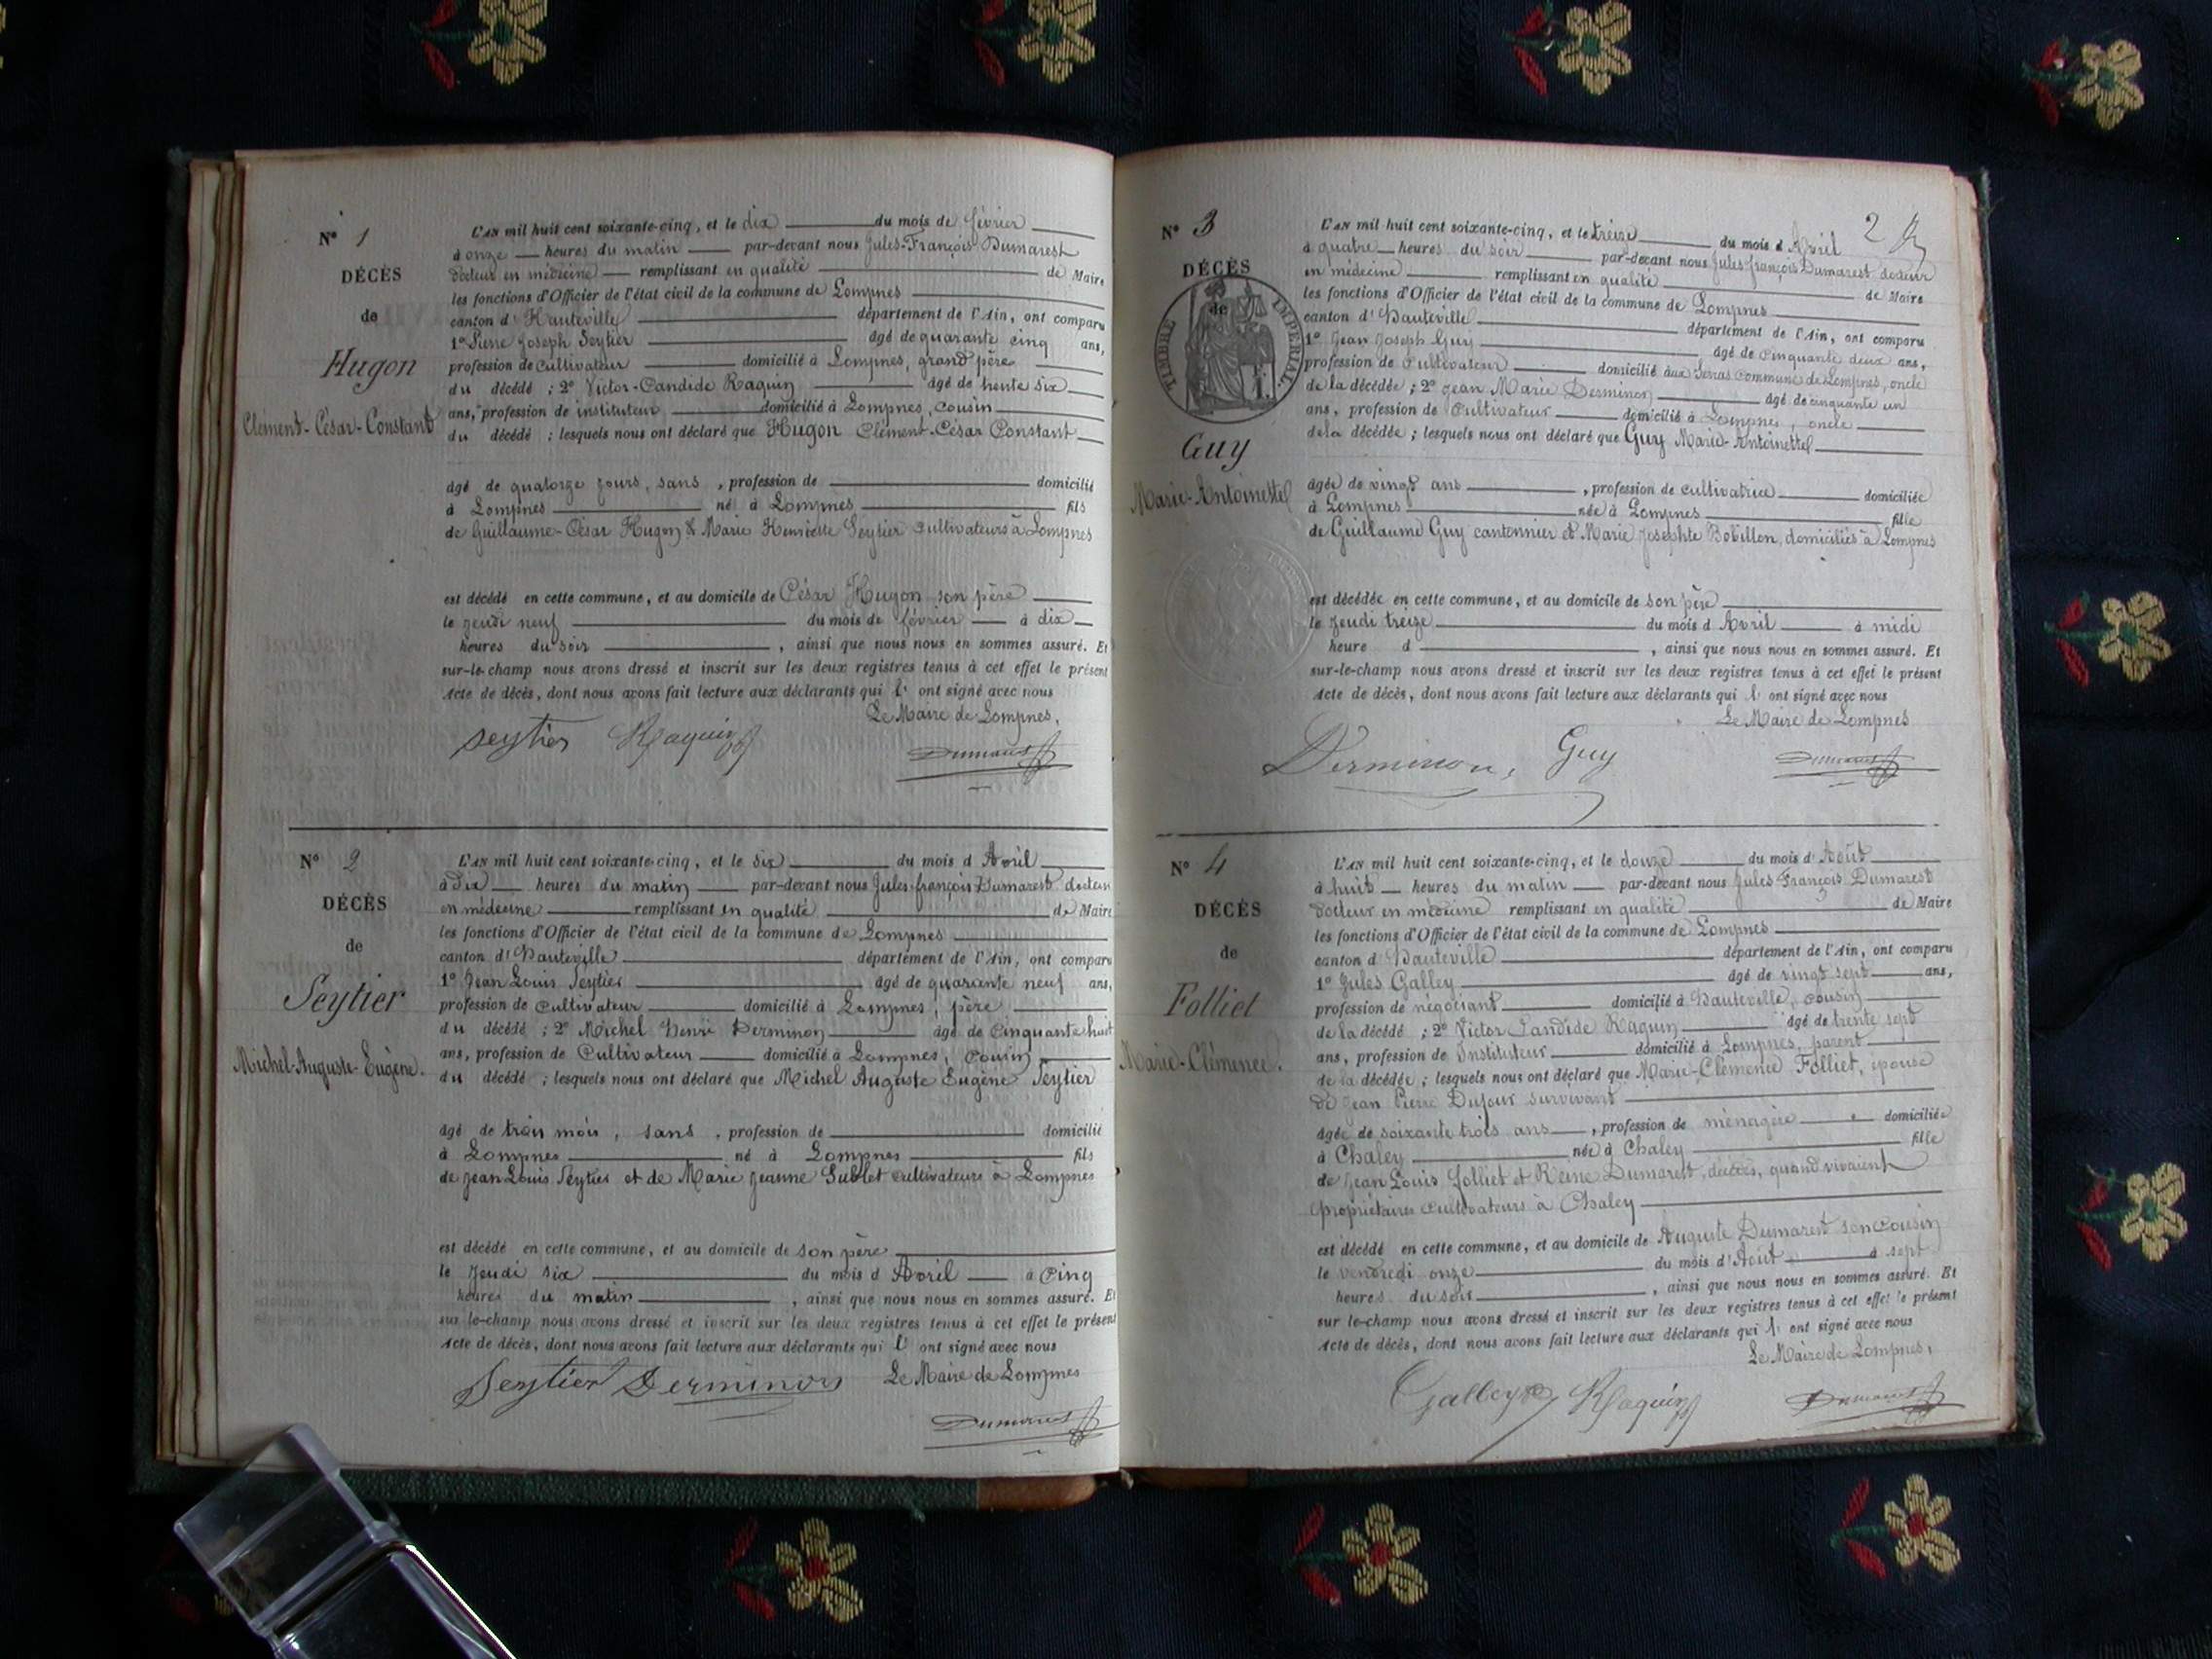 N° 1
DÉCÈS
de
Hugon
Clément-César-Constant
L'AN mil huit cent soixante-cinq, et le dix du mois de février
à onze heures du matin par-devant nous Jules-François Dumarest
docteur en médecine remplissant en qualité de Maire
les fonctions d'Officier de l'état civil de la commune de Lompnes
canton d'Hauteville département de l'Ain, ont comparu
1° Pierre Joseph Seytier âgé de quarante cinq ans,
profession de cultivateur domicilié à Lompnes, grand père
du décédé ; 2° Victor-Candide Raquin âgé de trente six
ans, profession de instituteur domicilié à Lompnes, cousin
du décédé ; lesquels nous ont déclaré que Hugon Clément-César Constant
âgé de quatorze jours, sans , profession de domicilié
à Lompnes né à Lompnes fils
de Guillaume-César Hugon & Marie Henriette Seytier cultivateurs à Lompnes
est décédé en cette commune, et au domicile de César Hugon son père
le jeudi neuf du mois de février à dix
heures du soir , ainsi que nous nous en sommes assuré. Et
sur-le-champ nous avons dressé et inscrit sur les deux registres tenus à cet effet le présent
Acte de décès, dont nous avons fait lecture aux déclarants qui l' ont signé avec nous
Le Maire de Lompnes,
Seytier Raquin Dumarest
N° 2
DÉCÈS
de
Seytier
Michel-Auguste-Eugène.
L'AN mil huit cent soixante-cinq, et le six du mois d Avril
à dix heures du matin par-devant nous Jules-françois Dumarest docteur
en médecine remplissant en qualité de Maire
les fonctions d'Officier de l'état civil de la commune de Lompnes
canton d'Hauteville département de l'Ain, ont comparu
1° Jean Louis Seytier âgé de quarante neuf ans,
profession de cultivateur domicilié à Lompnes, père
du décédé ; 2° Michel Henri Derminon âgé de Cinquante huit
ans, profession de Cultivateur domicilié à Lompnes, cousin
du décédé ; lesquels nous ont déclaré que Michel Auguste Eugène Seytier
âgé de trois mois, sans , profession de domicilié
à Lompnes né à Lompnes fils
de Jean Louis Seytier et de Marie Jeanne Sublet cultivateurs à Lompnes
est décédé en cette commune, et au domicile de son père
le jeudi six du mois d Avril à cinq
heures du matin , ainsi que nous nous en sommes assuré. Et
sur le-champ nous avons dressé et inscrit sur les deux registres tenus à cet effet le présent
Acte de décès, dont nous avons fait lecture aux déclarants qui l' ont signé avec nous
Seytier Derminon Le Maire de Lompnes
Dumarest
2
N° 3
DÉCÈS
de
TIMBRE IMPÉRIAL
Guy
Marie-Antoinette
L'AN mil huit cent soixante-cinq, et le treize du mois d Avril
à quatre heures du soir par-devant nous Jules françois Dumarest docteur
en médecine remplissant en qualité de Maire
les fonctions d'Officier de l'état civil de la commune de Lompnes
canton d'Hauteville département de l'Ain, ont comparu
1° Jean Joseph Guy âgé de cinquante deux ans,
profession de Cultivateur domicilié aux Serras commune de Lompnes, oncle
de la décédée ; 2° Jean Marie Derminon âgé de cinquante un
ans, profession de Cultivateur domicilié à Lompnes, oncle
de la décédée ; lesquels nous ont déclaré que Guy Marie-Antoinette
âgée de vingt ans , profession de cultivatrice domiciliée
à Lompnes née à Lompnes fille
de Guillaume Guy cantonnier et Marie Josephte Bobillon, domiciliés à Lompnes
est décédée en cette commune, et au domicile de son père
le jeudi treize du mois d Avril à midi
heure d , ainsi que nous nous en sommes assuré. Et
sur-le-champ nous avons dressé et inscrit sur les deux registres tenus à cet effet le présent
Acte de décès, dont nous avons fait lecture aux déclarants qui l' ont signé avec nous
Le Maire de Lompnes
Derminon, Guy Dumarest
N° 4
DÉCÈS
de
Folliet
Marie-Clémence.
L'AN mil huit cent soixante-cinq, et le douze du mois d'Août
à huit heures du matin par-devant nous Jules-François Dumarest
docteur en médecine remplissant en qualité de Maire
les fonctions d'Officier de l'état civil de la commune de Lompnes
canton d'Hauteville département de l'Ain, ont comparu
1° Jules Galley âgé de vingt sept ans,
profession de négociant domicilié à Hauteville, cousin
de la décédé ; 2° Victor Candide Raquin âgé de trente sept
ans, profession de Instituteur domicilié à Lompnes, parent
de la décédée ; lesquels nous ont déclaré que Marie-Clémence Folliet, épouse
de Jean Pierre Dufour survivant
âgée de soixante trois ans , profession de ménagère domiciliée
à Chaley née à Chaley fille
de Jean Louis folliet et Reine Dumarest, décédés, quand vivaient
propriétaires cultivateurs à Chaley
est décédé en cette commune, et au domicile de Auguste Dumarest son cousin
le vendredi onze du mois d'Août à sept
heures du soir , ainsi que nous nous en sommes assuré. Et
sur le-champ nous avons dressé et inscrit sur les deux registres tenus à cet effet le présent
Acte de décès, dont nous avons fait lecture aux déclarants qui l' ont signé avec nous
Le Maire de Lompnes,
Galley Raquin Dumarest